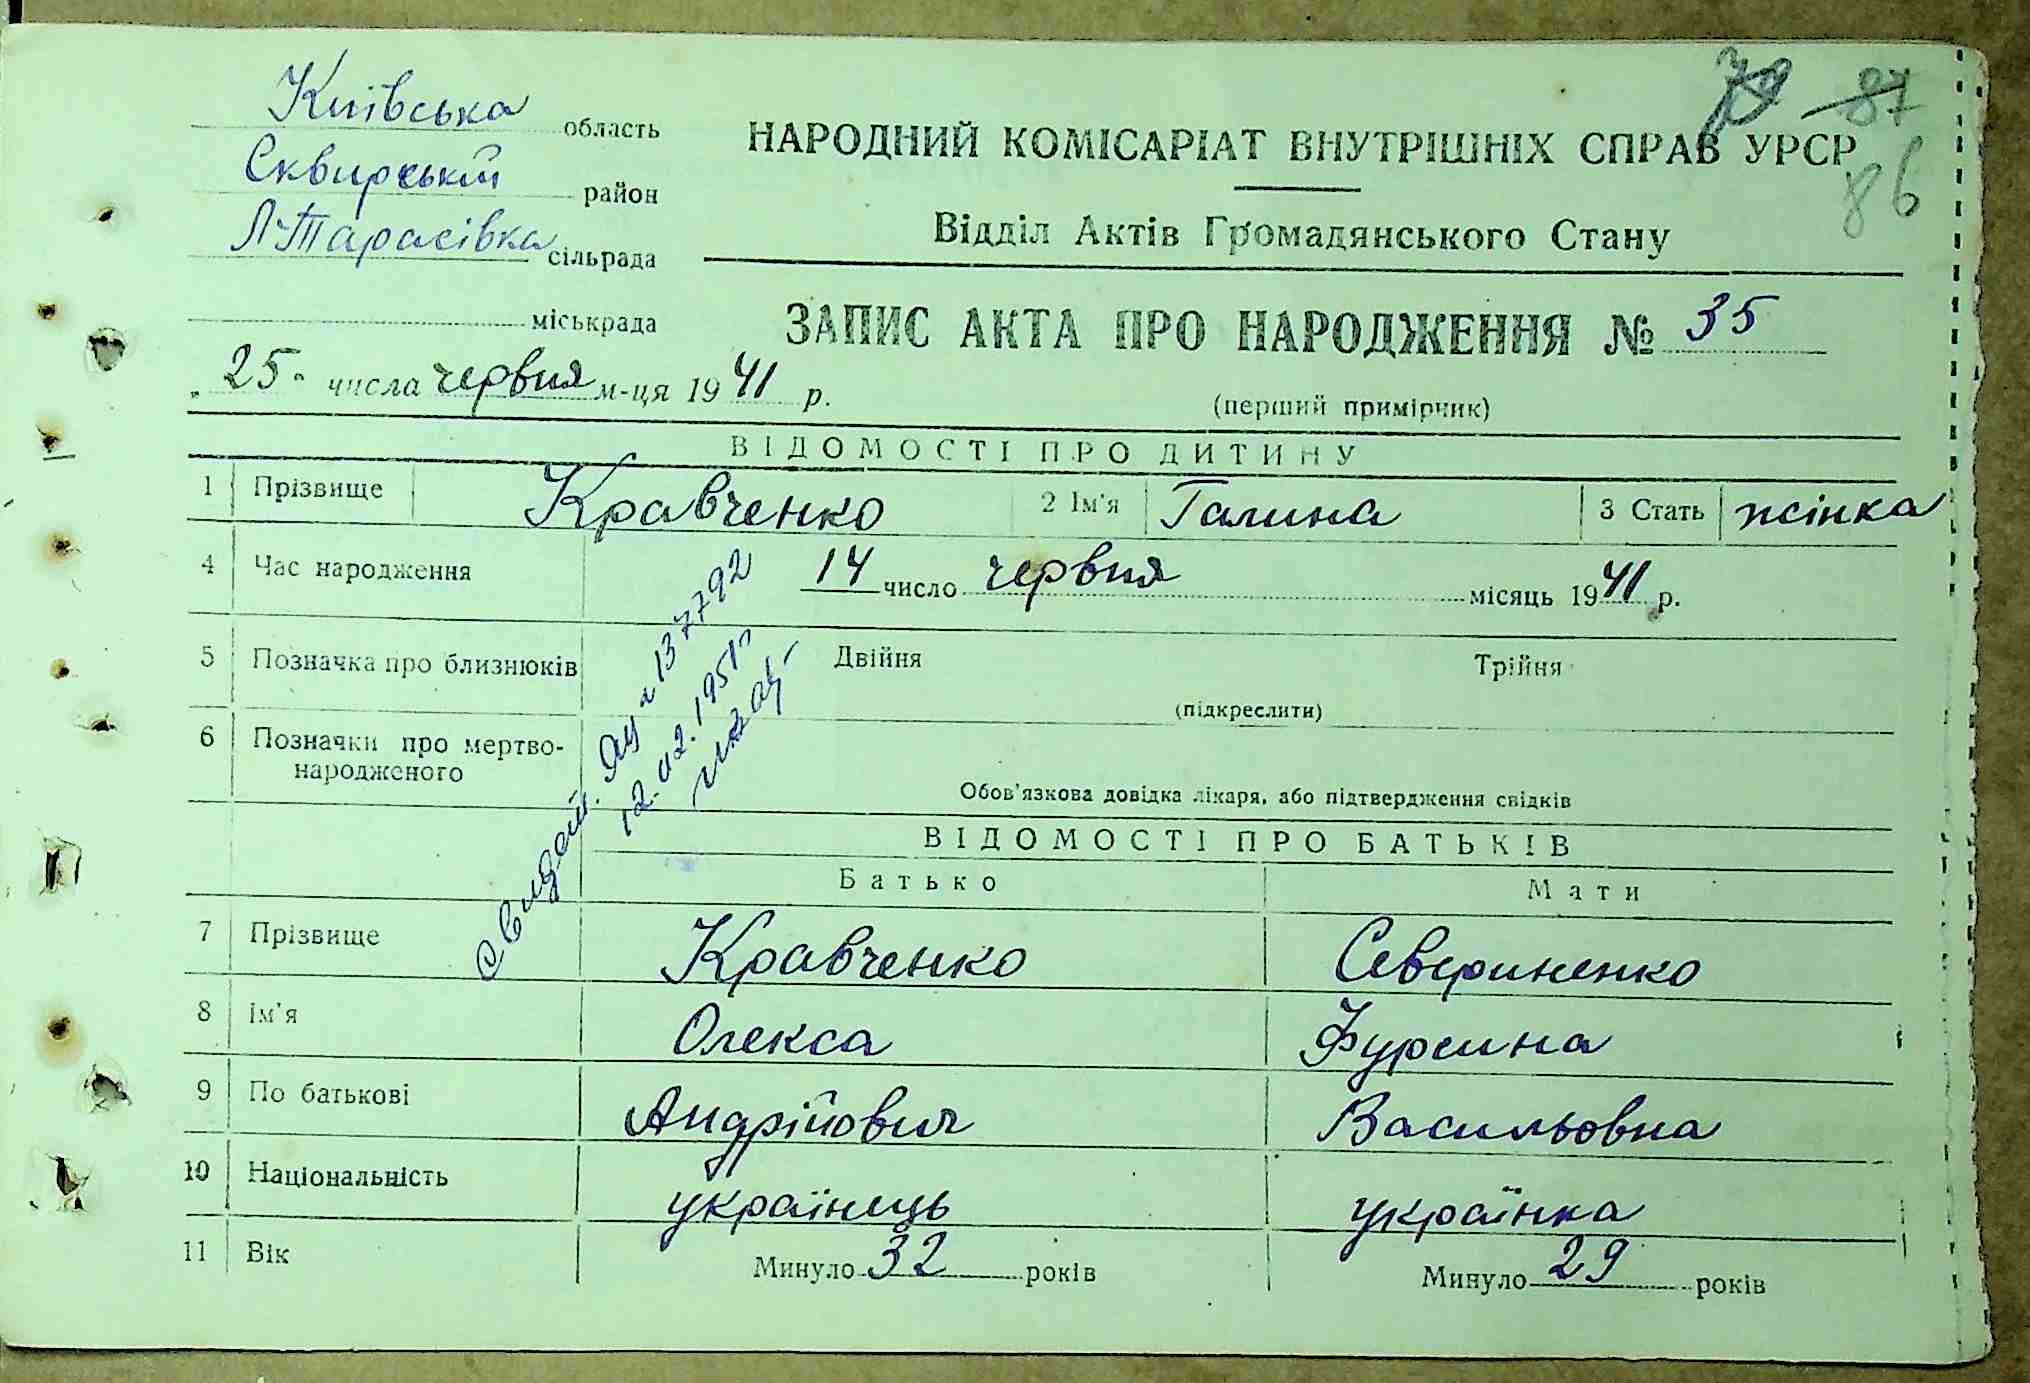 Київська область
Сквирський район
Л-Тарасівка сільрада
міськрада
87
86
НАРОДНИЙ КОМІСАРІАТ ВНУТРІШНІХ СПРАВ УРСР
Відділ Актів Громадянського Стану
ЗАПИС АКТА ПРО НАРОДЖЕННЯ № 35
„ 25 " числа червня м-ця 1941 р.
(перший примірник)
ВІДОМОСТІ ПРО ДИТИНУ
1 Прізвище Кравченко 2 Ім'я Галина 3 Стать жінка
4 Час народження 14 число червня місяць 1941 р.
5 Позначка про близнюків Двійня Трійня
(підкреслити)
6 Позначки про мертво-
народженого
Обов'язкова довідка лікаря, або підтвердження свідків
137792
12.02.1951г
ВІДОМОСТІ ПРО БАТЬКІВ
Батько Мати
7 Прізвище Кравченко Севериненко
8 Ім'я Олекса Фурсина
9 По батькові Андрійович Васильовна
10 Національність українець українка
11 Вік Минуло 32 років Минуло 29 років